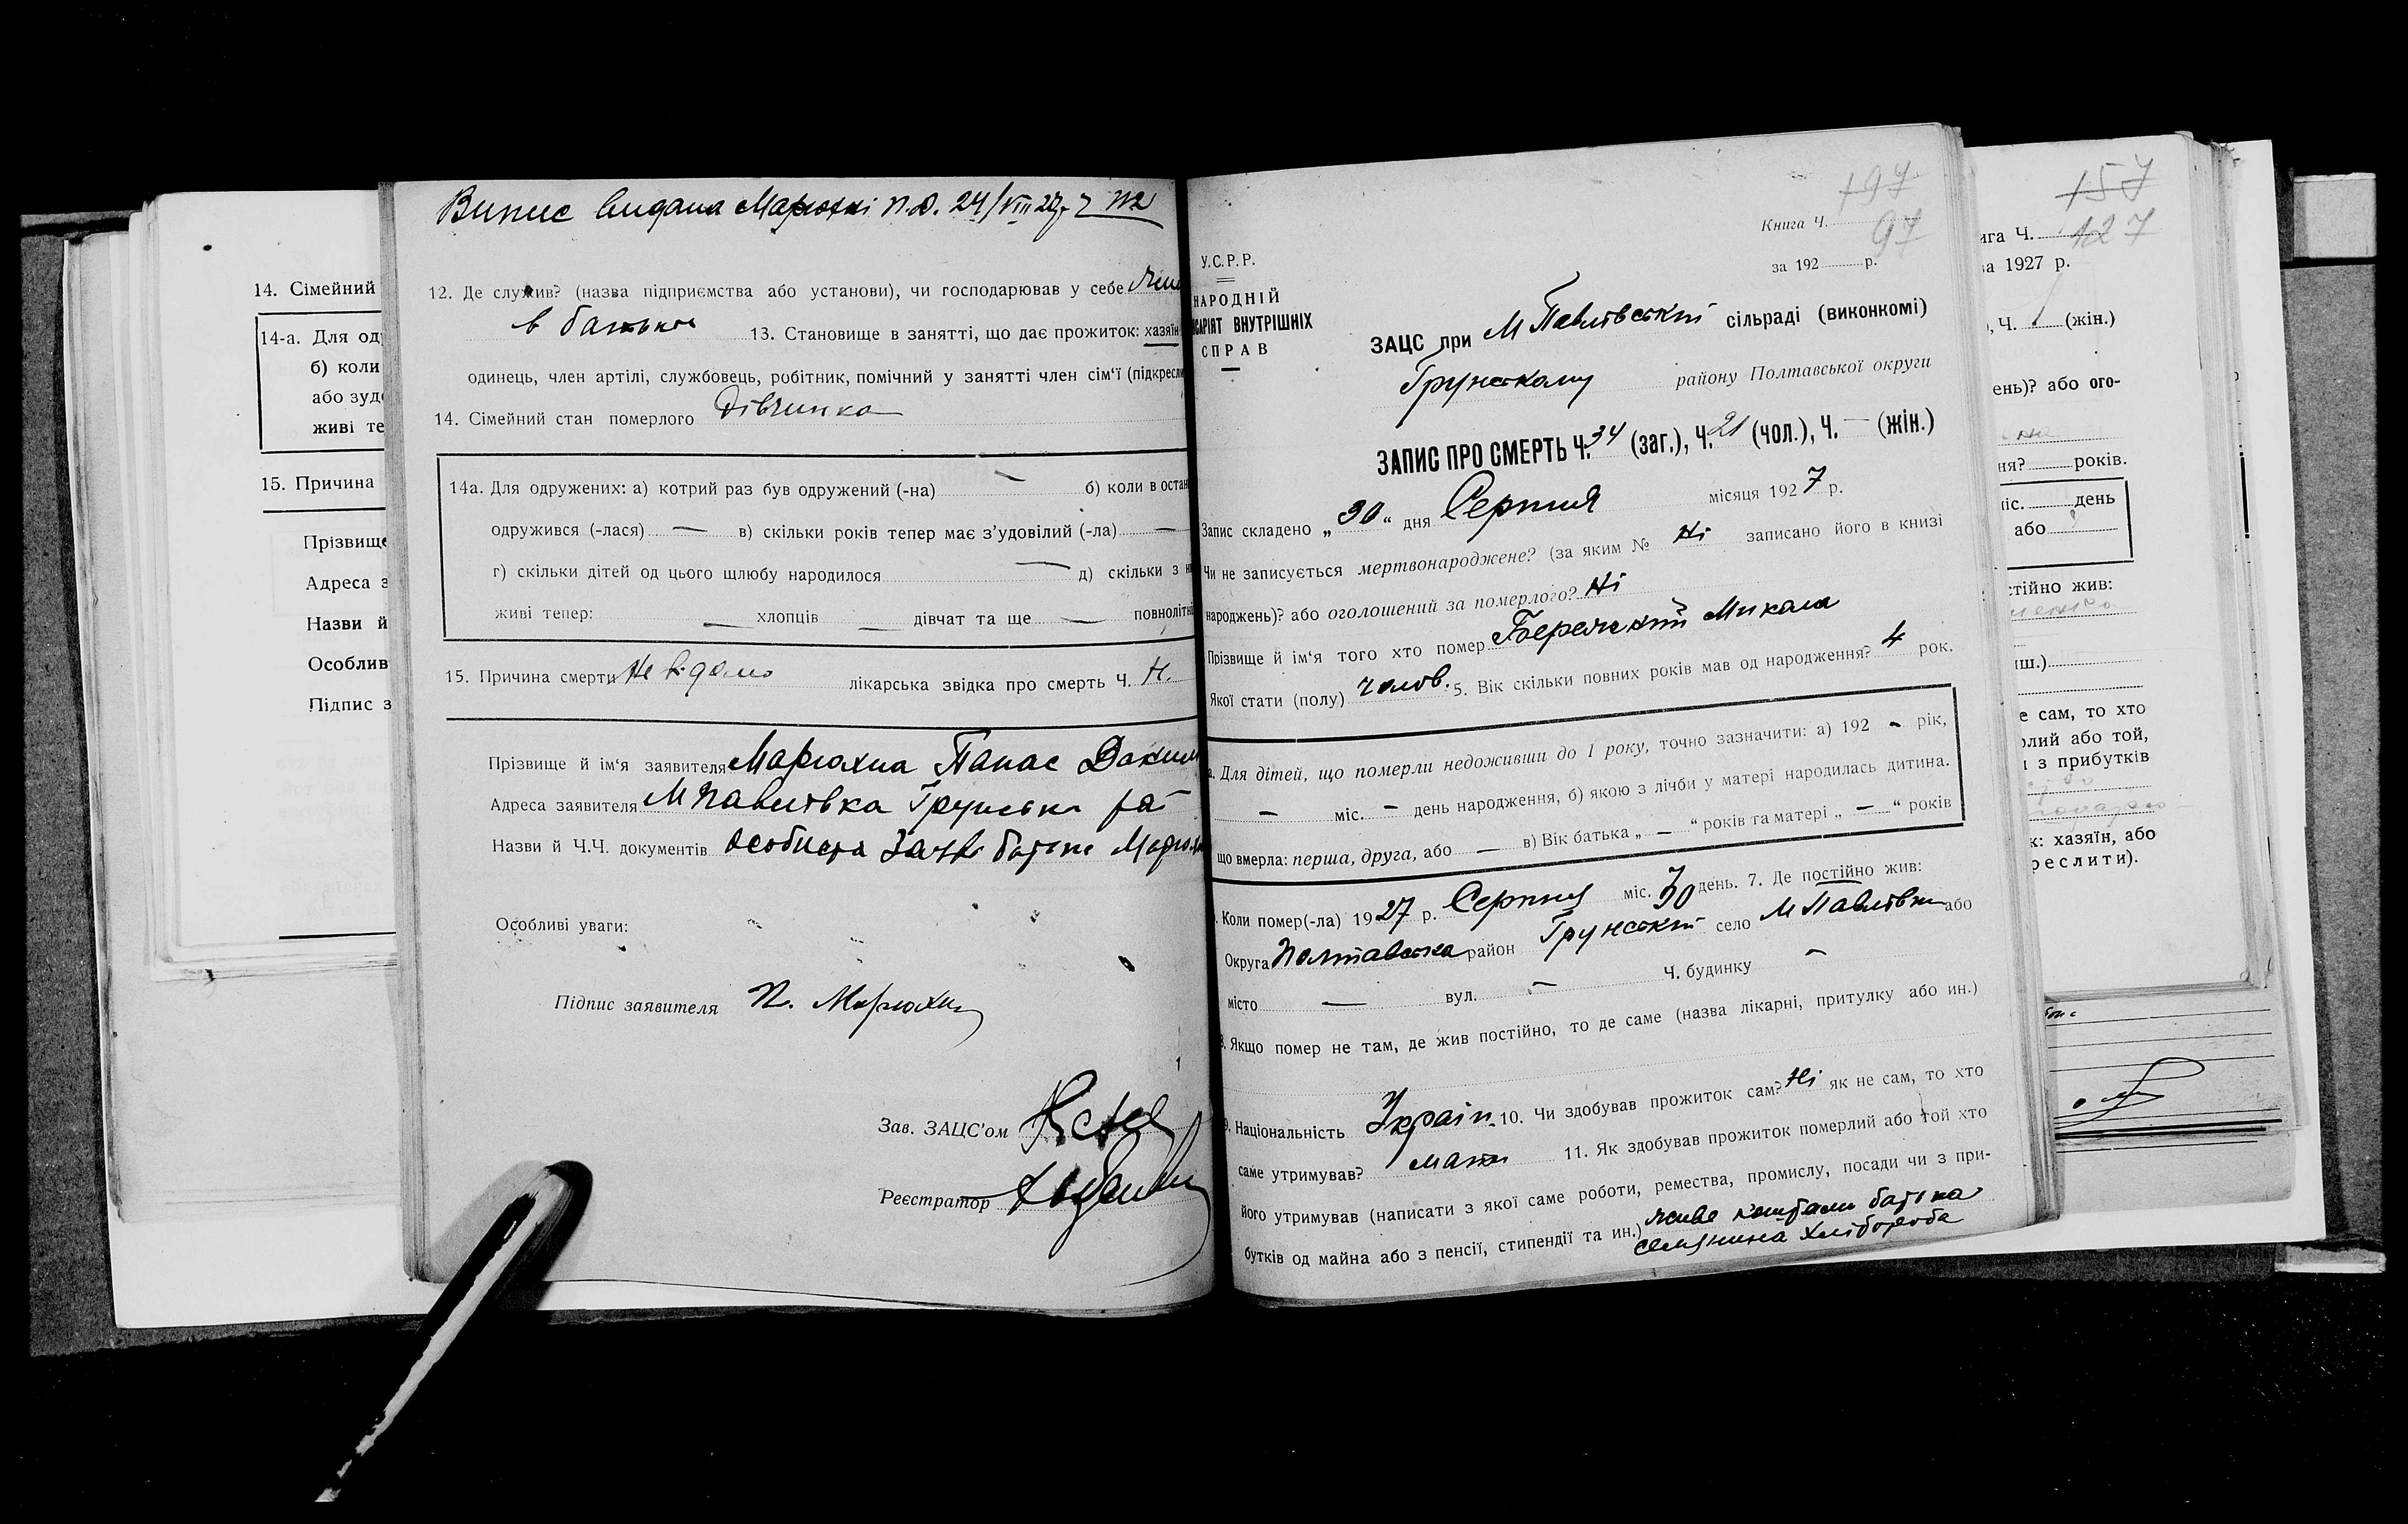 14. Сімейний
14-а. Для од
б) коли
або зуд
живі те
15. Причина
Прізвище
Адреса з
Назви й
Особлив
Підпис з
Випис видана Марюхні П.Д. 24/VIII 27 р.
12. Де служив? (назва підприємства або установи), чи господарював у себе
в батька 13. Становище в занятті, що дає прожиток: хазяїн
одинець, член артілі, службовець, робітник, помічний у занятті член сім'ї (підкресл
14. Сімейний стан померлого Дівчинка
14а. Для одружених: а) котрий раз був одружений (-на) — б) коли в остан
одружився (-лася) — в) скільки років тепер має з'удовілий (-ла) —
г) скільки дітей од цього шлюбу народилося — д) скільки з н
живі тепер: — хлопців — дівчат та ще — повнолітні
15. Причина смерти Невідомо лікарська звідка про смерть Ч. Н.
Прізвище й ім'я заявителя Марюхна Панас
Адреса заявителя М Павлівка Грунськ ра-
Назви й Ч.Ч. документів Особиста заява батька
Особливі уваги:
Підпис заявителя П. Марюхн
Зав. ЗАЦС'ом
Реєстратор
197
Книга Ч. 97
за 192 р.
У.С.Р.Р.
НАРОДНІЙ
ІСАРІЯТ ВНУТРІШНІХ
СПРАВ
ЗАЦС при М Павлівській сільраді (виконкомі)
Грунському району Полтавської округи
ЗАПИС ПРО СМЕРТЬ Ч. 34 (заг.), Ч. 21 (чол.), Ч. — (жін.)
Запис складено „30“ дня Серпня місяця 1927 р.
Чи не записується мертвонароджене? (за яким № Ні записано його в книзі
народжень)? або оголошений за померлого? Ні
Прізвище й ім'я того хто помер Микола
Якої стати (полу) чолов. 5. Вік скільки повних років мав од народження? 4 рок.
а. Для дітей, що померли недоживши до 1 року, точно зазначити: а) 192 - рік,
— міс. - день народження, б) якою з лічби у матері народилась дитина.
що вмерла: перша, друга, або — в) Вік батька „ — “ років та матері „ — “ років
. Коли помер(-ла) 1927 р. Серпня міс. 30 день. 7. Де постійно жив:
Округа Полтавська район Грунський село М Павлівка або
місто — вул. — Ч. будинку —
8. Якщо помер не там, де жив постійно, то де саме (назва лікарні, притулку або ин.)
9. Національність Україн. 10. Чи здобував прожиток сам? Ні як не сам, то хто
саме утримував? мати 11. Як здобував прожиток померлий або той хто
його утримував (написати з якої саме роботи, ремества, промислу, посади чи з при-
бутків од майна або з пенсії, стипендії та ин.) живе коштами батька
селянина хлібороба
157
ига Ч. 127
а 1927 р.
, Ч. / (жін.)
ень)? або ого-
ня? років.
іс. день
або
стійно жив:
иш.)
е сам, то хто
рлий або той,
и з прибутків
к: хазяїн, або
реслити).